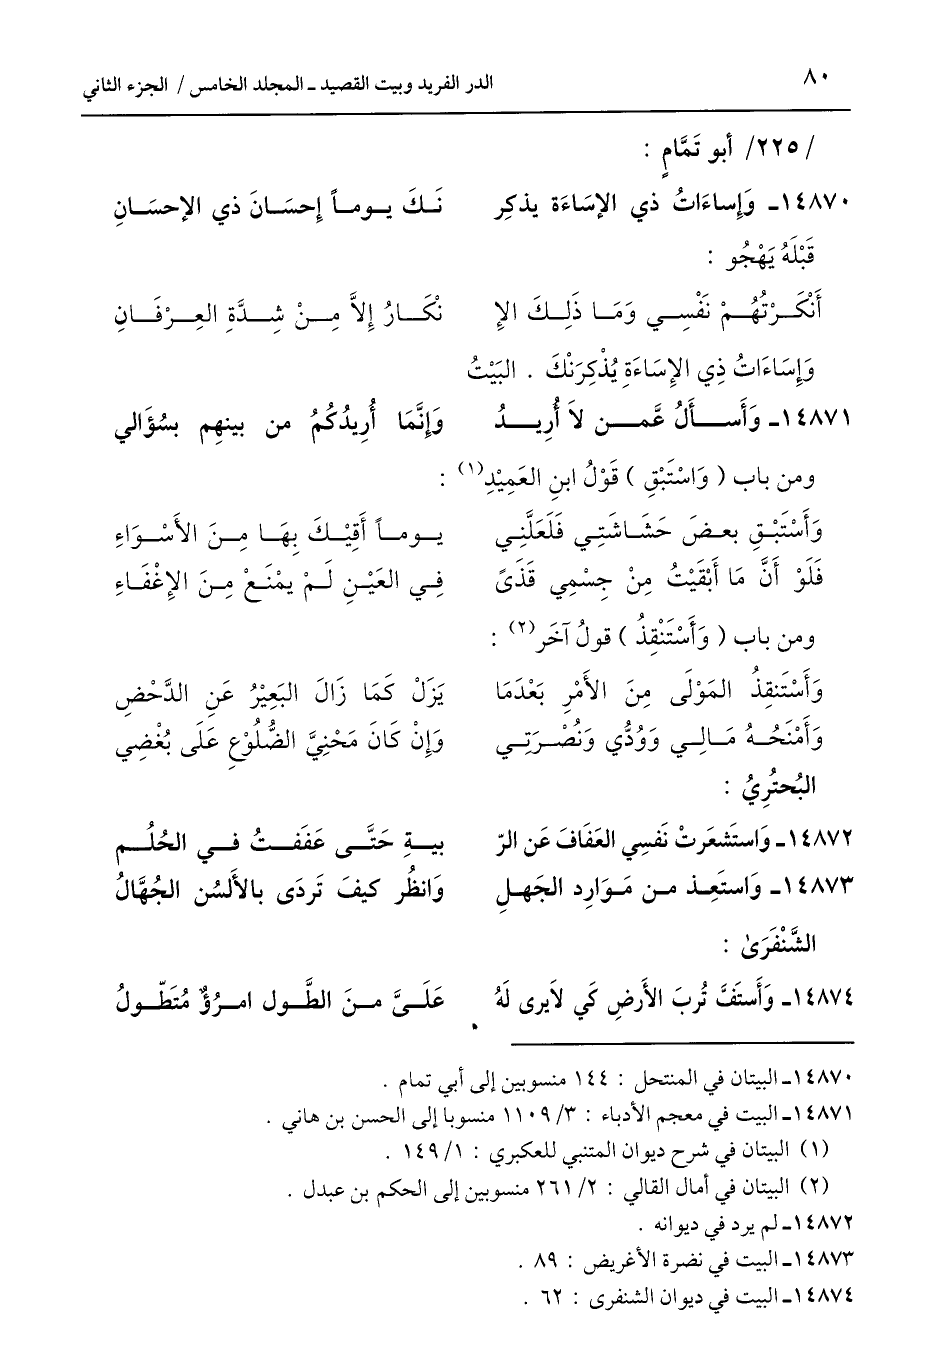 ٨٠ الدر الفريد وبيت القصيد ــ المجلد الخامس / الجزء الثاني
/ ٢٢٥/ أبو تَمَّامٍ :
١٤٨٧٠ــ وَإِساءَاتُ ذي الإسَاءَة يذكِر نَـكَ يـومـاً إِحسَـانَ ذي الإحسَـانِ
قَبْلَهُ يَهْجُو :
أَنْكَـرْتُهُـمْ نَفْسِـي وَمَـا ذَلِـكَ الإِ نْكَـارُ إلاَّ مِـنْ شِـدَّةِ العِـرْفَـانِ
وَإِسَاءَاتُ ذِي الإسَاءَةِ يُذْكِرَنْكَ . البَيْتُ
١٤٨٧١ــ وَأَسـأَلُ عَّمـن لاَ أُريـدُ وَإِنَّمَا أُريدُكُمُ من بينهِم بسُؤَالي
ومن باب ( وَاسْتَبْقِ ) قَوْلُ ابنِ العَمِيْدِ(١) :
وَأَسْتَبْقِ بعضَ حَشَاشَتِي فَلَعَلَّنِي يـومـاً أَقِيْكَ بِهَا مِـنَ الأَسْوَاءِ
فَلَوْ أَنَّ مَا أَبْقَيْتُ مِنْ جِسْمِي قَذَىً فِـي العَيْـنِ لَـمْ يمْنَـعْ مِـنَ الإغْفَـاءِ
ومن باب ( وَأَسْتَنْقِذُ ) قولُ آخَر(٢) :
وَأَسْتَنقِذُ المَوْلَى مِنَ الأَمْرِ بَعْدَمَا يَزَلْ كَمَا زَالَ البَعِيْرُ عَنِ الدَّحْضِ
وَأَمْنَحُـهُ مَـالِـي وَوُدُّي وَنُصْـرَتِـي وَإنْ كَانَ مَحْنِيَّ الضُّلُوْعِ عَلَى بُغْضِي
البُحتُرِيُ :
١٤٨٧٢ــ وَاستَشعَرتْ نَفسِي العَفَافَ عَن الرّ يبـةِ حَتَّـى عَفَفـتُ فـي الحُلُـمِ
١٤٨٧٣ــ وَاستَعِـذ مـن مَـوَارِد الجَهـلِ وَانظُر كيفَ تَردَى بالأَلسُن الجُهَّالُ
الشَّنْفَرَىٰ :
١٤٨٧٤ــ وَأَستَفَّ تُربَ الأَرضِ كَي لاَيرى لَهُ عَلَـىَّ مـنَ الطَّـول امـرُؤٌ مُتَطّـولُ
١٤٨٧٠ــ البيتان في المنتحل : ١٤٤ منسوبين إلى أبي تمام .
١٤٨٧١ــ البيت في معجم الأدباء : ٣/ ١١٠٩ منسوبا إلى الحسن بن هاني .
(١) البيتان في شرح ديوان المتنبي للعكبري : ١/ ١٤٩ .
(٢) البيتان في أمال القالي : ٢/ ٢٦١ منسوبين إلى الحكم بن عبدل .
١٤٨٧٢ــ لم يرد في ديوانه .
١٤٨٧٣ــ البيت في نضرة الأغريض : ٨٩ .
١٤٨٧٤ــ البيت في ديوان الشنفرى : ٦٢ .